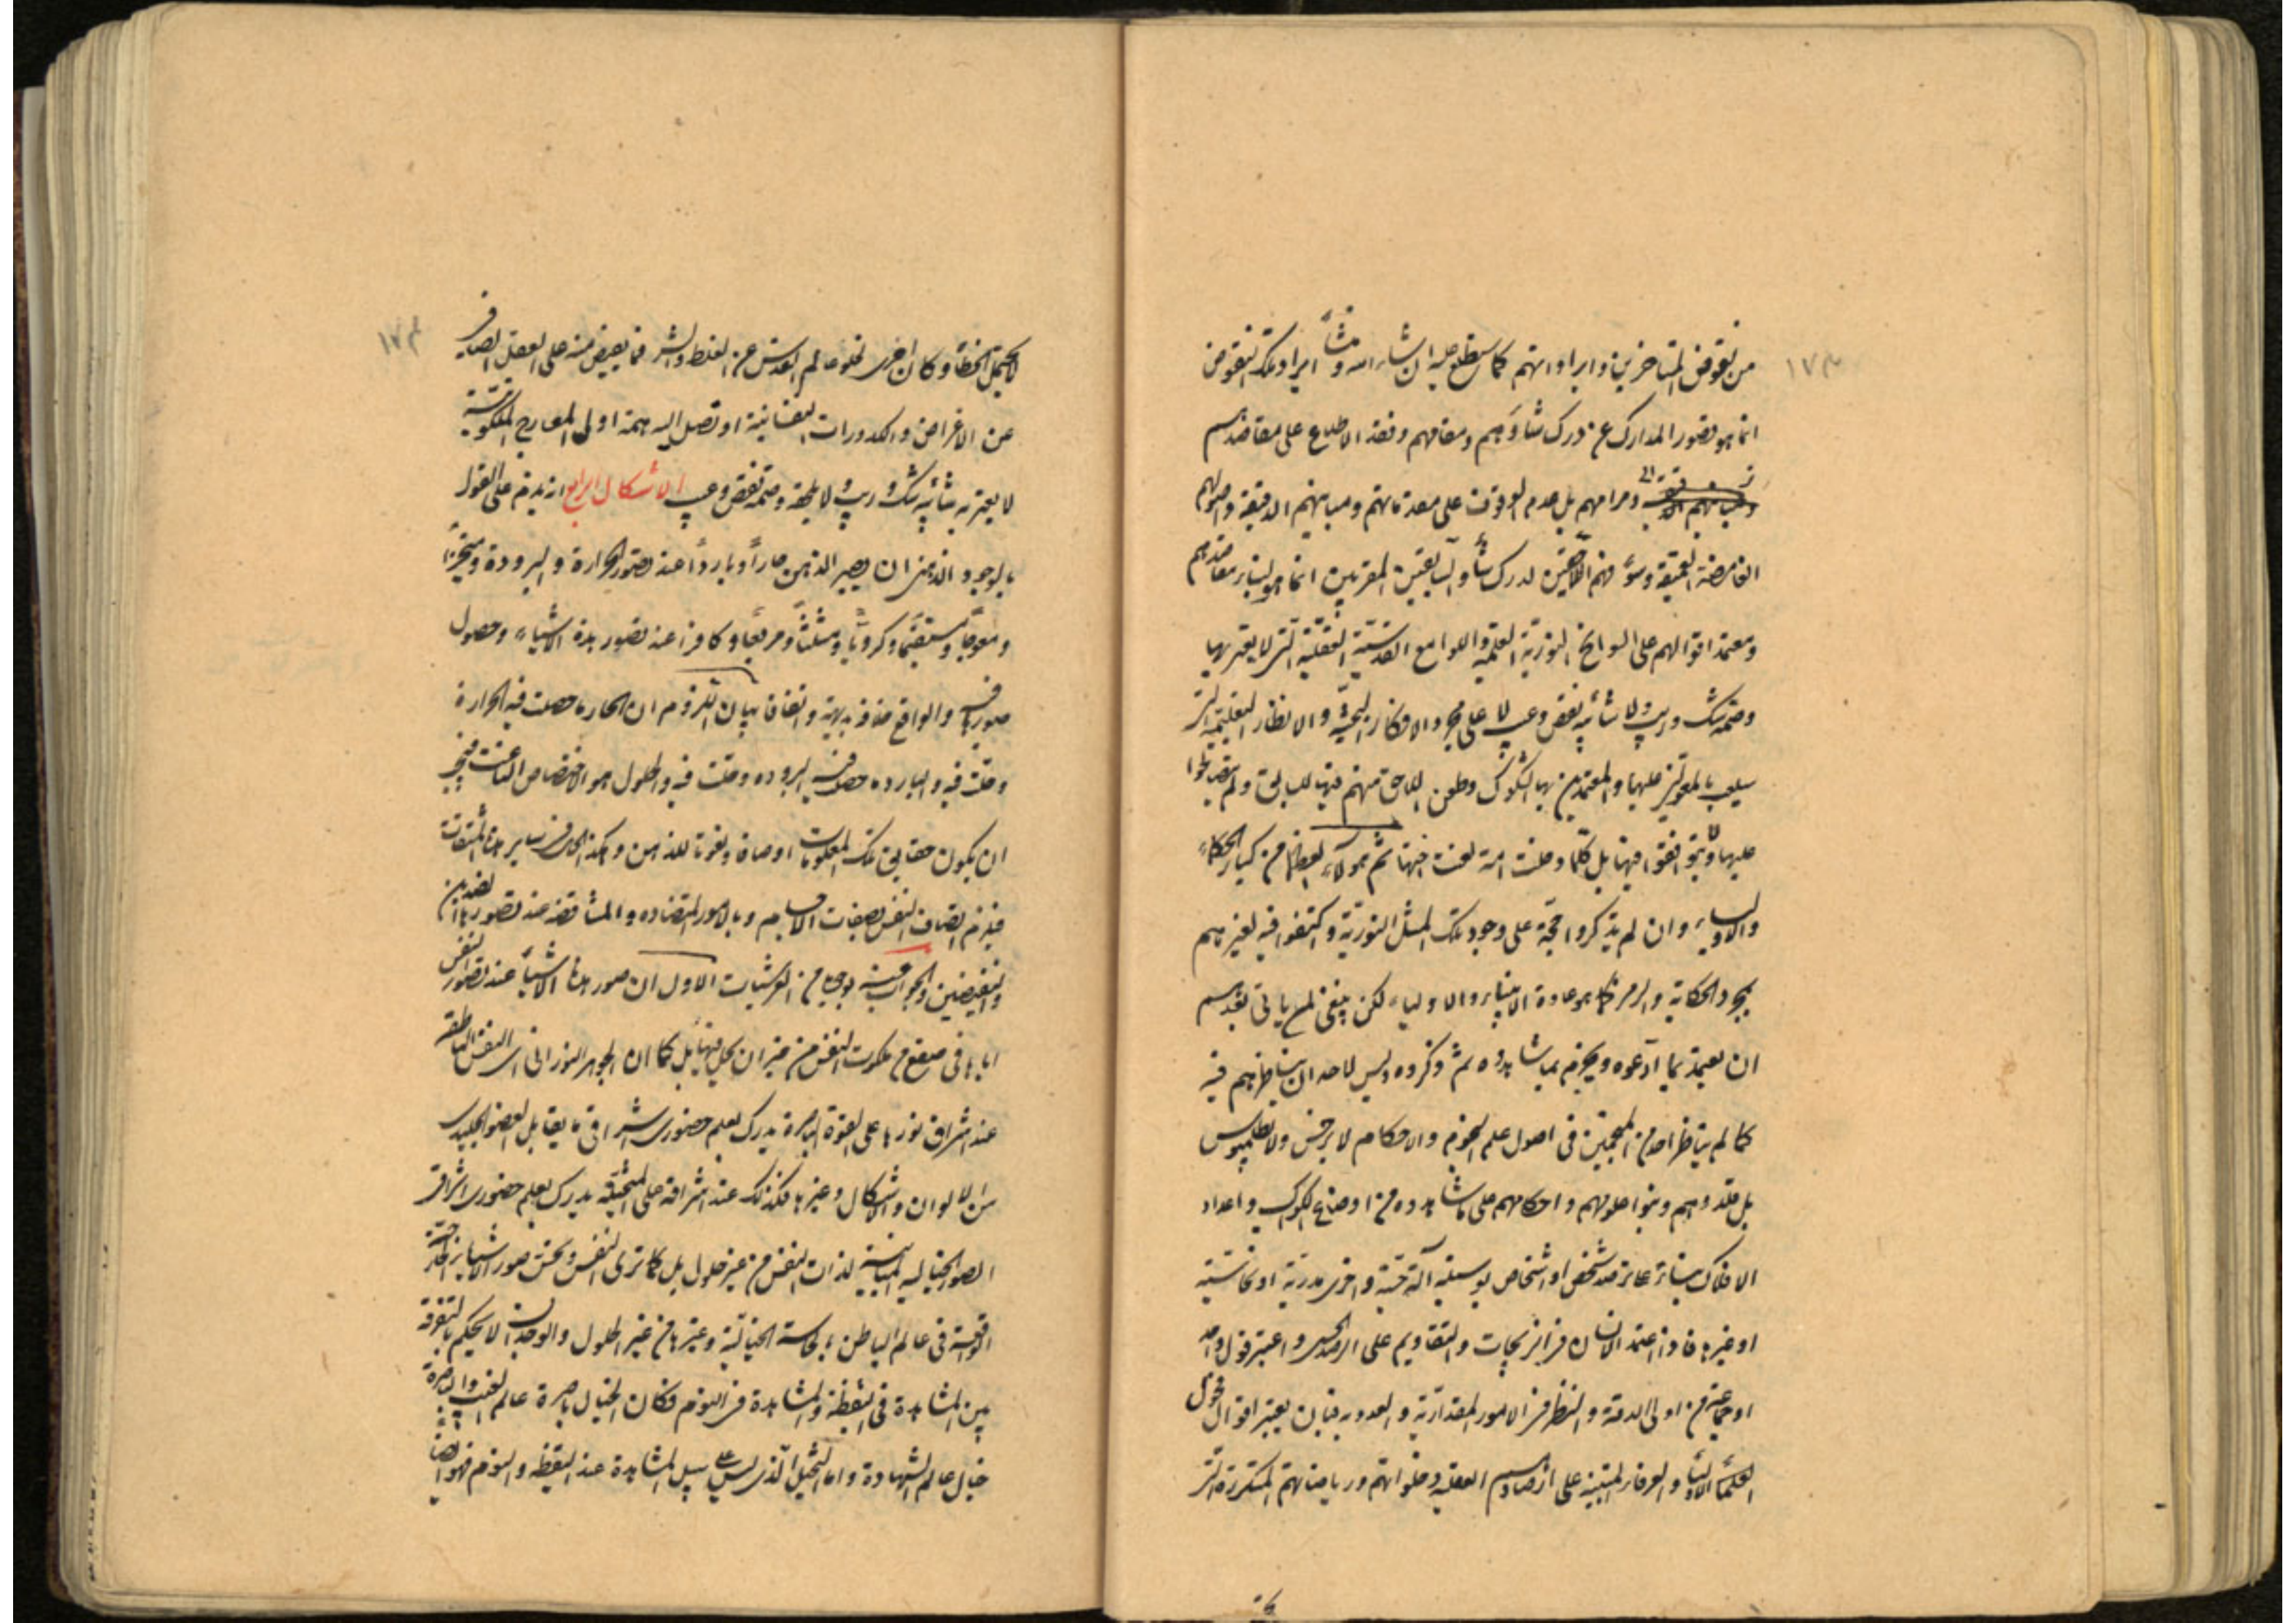 من نقوض المتأخرين وايراداتهم كما ستطلع عليه ان شاء الله ومنشأ ايراد تلك النقوض
انما هو قصور المدارك عن درك شأوهم ومقامهم وفقد الاطلاع على مقاصدهم
ومرامهم بل عدم الوقوف على مقدماتهم ومبانيهم الدقيقة واصولهم
الغامضة العميقة وسوء فهم اللاحقين لدرك شأو السابقين المقربين انما هو لبناء مقاصدهم
ومعتمد اقوالهم على السوانح النورية العلمية واللوامع القدسية العقلية التى لا يعتريها
وصمة شك وريب ولا شائبة نقص وعيب لا على مجرد الافكار البحثية والانظار التعليمية التى
سيلعب بالمعولين عليها والمعتمدين بها الشكوك وطعن اللاحق منهم فيها للسابق ولم يتصالحوا
عليها ولا يتوافقوا فيها بل كلما دخلت امة لعنت اختها ثم هؤلاء العظماء من كبار الحكماء
والاولياء وان لم يذكروا حجة على وجود تلك المثل النورية واكتفوا فيه لغيرهم
بمجرد الحكاية والرمز كما هو عادة الانبياء والاولياء لكن ينبغى لمن ياتى بعدهم
ان يعتمد بما ادعوه ويجزم بما شاهدوه ثم ذكروه وليس لاحد ان يناظرهم فيه
كما لم يناظر احد من المنجمين فى اصول علم النجوم والاحكام لابرخس ولا بطلميوس
بل قلدوهم وبنوا علومهم واحكامهم على ما شاهدوه من اوضاع الكواكب واعداد
الافلاك بناء على ترصد شخص او اشخاص بوسيلة آلة حسية واخرى مدرية او نحاسية
او غيرها فاذا اعتمد الانسان فى الزيجات والتقاويم على الرصد الحسى واعتبر قول واحد
او جماعة من اولى الدقة والنظر فى الامور المقدارية والعددية فبان يعتبر اقوال فحول
العلماء الاولياء والعرفاء المبتنية على ارصادهم العقلية وخلواتهم ورياضاتهم المتكررة التى
لا يحتمل الخطأ وكان احرى لخلو عالم القدس عن الغلط والشر فما يفيض منه على العقل الصافى
عن الاغراض والكدورات النفسانية او تصل اليه همة اولى المعارج الملكوتية
لا يعتريه شائبة شك وريب ولا يلحقه وصمة نقص وعيب الاشكال الرابع انه يلزم على القول
بالوجود الذهنى ان يصير الذهن حاراً وبارداً عند تصور الحرارة والبرودة ومتحيزاً
ومعوجاً ومستقيماً وكروياً ومثلثاً ومربعاً وكافراً عند تصور هذه الاشياء وحصول
صورها فيه والواقع خلافه بديهة واتفاقا بيان اللزوم ان الحار ما حصلت فيه الحرارة
وحلت فيه والبارد ما حصلت فيه البرودة وحلت فيه والحلول هو الاختصاص الناعت فيجب
ان يكون حقايق تلك المعلومات اوصافا ونعوتا للذهن وهكذا الحال فى ساير هذه المشتقات
فيلزم اتصاف النفس بصفات الاجسام وبالامور المتضادة والمتناقضة عند تصورها الضدين
والنقيضين والجواب عنه بوجوه من العرشيات الاول ان صور هذه الاشياء عند تصور النفس
اياها فى صقع من ملكوت النفس من غير ان يحل فيها بل كما ان الجوهر النورانى اى النفس الناطقة
عند اشراق نورها على القوة الباصرة يدرك بعلم حضورى اشراقى ما يقابل العضو الجليدى
من الالوان والاشكال وغيرها فكذلك عند اشراقه على المتخيلة يدرك بعلم حضورى اشراقى
الصور الخيالية المباينة لذات النفس من غير حلول بل كما ترى النفس وتحس صور الاشياء الخارجية
الواقعة فى عالم الباطن بالحاسة الخيالية وغيرها من غير الحلول والوجدان لا يحكم بالتفرقة
بين المشاهدة فى اليقظة والمشاهدة فى النوم فكان الخيال باصرة عالم الغيب والباصرة
خيال عالم الشهادة واما التخيل الذى ليس على سبيل المشاهدة عند اليقظة والنوم فهو ايضاً